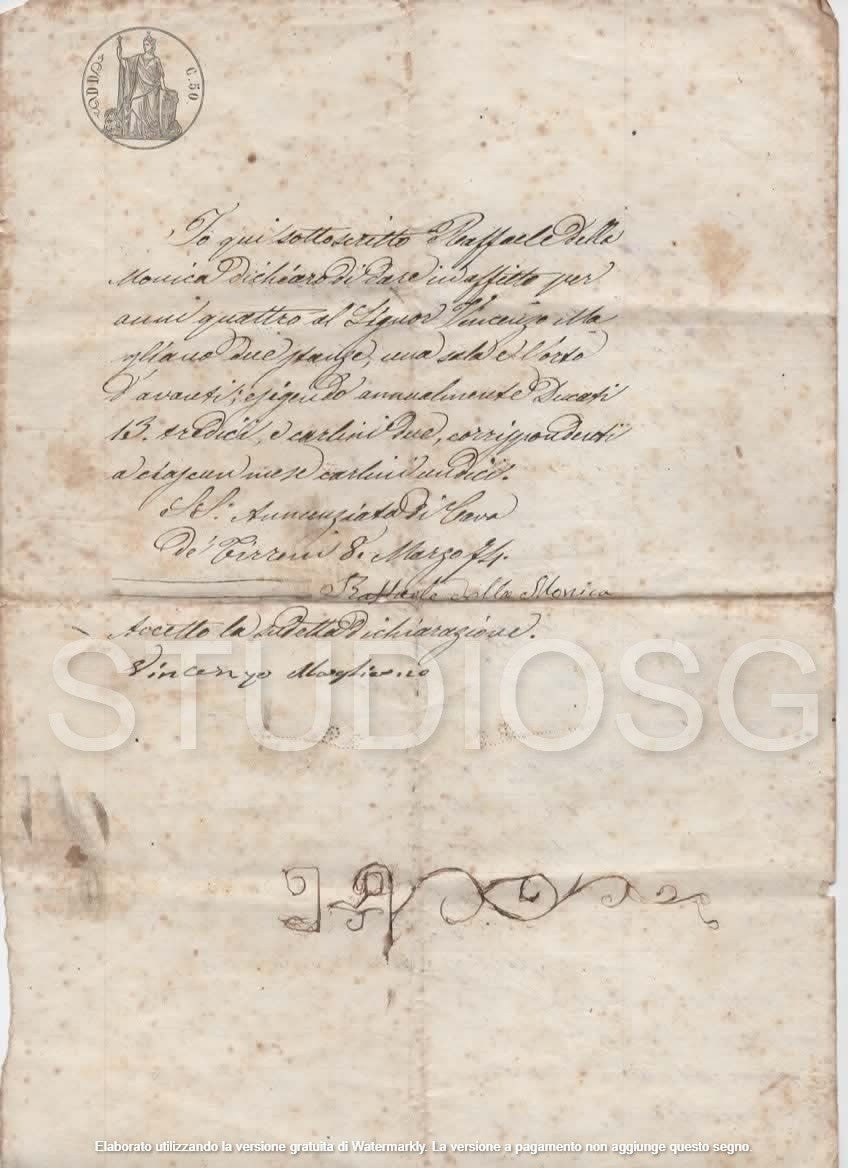 C. 50.
Io qui sottoscritto Raffaele della
Monica dichiaro di dare in affitto per
anni quattro al Signor Vincenzo Ma
gliano due stanze, una sala e l'orto
d'avanti; esigendo annualmente Ducati
13. tredici, e carlini due, corrispondenti
a ciascun mese carlini undici.
SS. Annunziata di Cava
de' Tirreni 8. Marzo 74.
Raffaele della Monica
Accetto la sudetta dichiarazione.
Vincenzo Magliano
STUDIOSG
Elaborato utilizzando la versione gratuita di Watermarkly. La versione a pagamento non aggiunge questo segno.